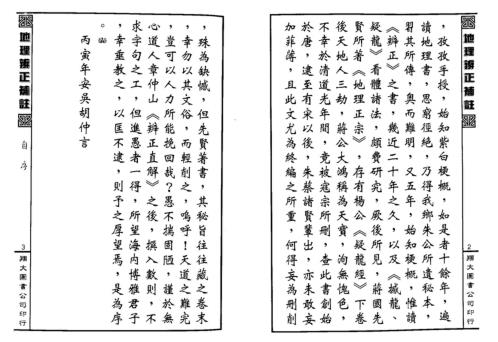 地理辨正補註
，孜孜手授，始知紫白梗概，如是者十餘年，遍
讀地理書，思窮徑絕，乃得我鄉朱公所遺秘本，
習其所傳，奧而難明，又五年，始知梗概，惟讀
《辨正》之書，幾近二十年之久，以及《撼龍、
疑龍》看體諸法，頗費研究，厥後所見，蔣國先
賢所著《地理正宗》，存有楊公《疑龍經》下卷
後天地人三劫，蔣公大鴻稱為天寶，洵無愧色，
不幸於清道光年間，竟被寇宗所刪，查此書創始
於唐，逮至有宋以後，朱蔡諸賢輩出，亦未敢妄
加菲薄，且此文尤為終編之所重，何得妄為刪削
2
翔大圖書公司印行
地理辨正補註
自序
，殊為缺憾，但先賢著書，其秘旨往往藏之卷末
，幸勿以其文俗，而輕削之，嗚呼！天道之難完
，豈可以人力所能挽回哉？愚不揣固陋，謹於無
心道人章仲山《辨正直解》之後，撰入數則，不
求字句之工，但進愚者一得，所望海內博雅君子
，幸垂教之，以匡不逮，則予之厚望焉，是為序
。
丙寅年安吳胡仲言
3
翔大圖書公司印行